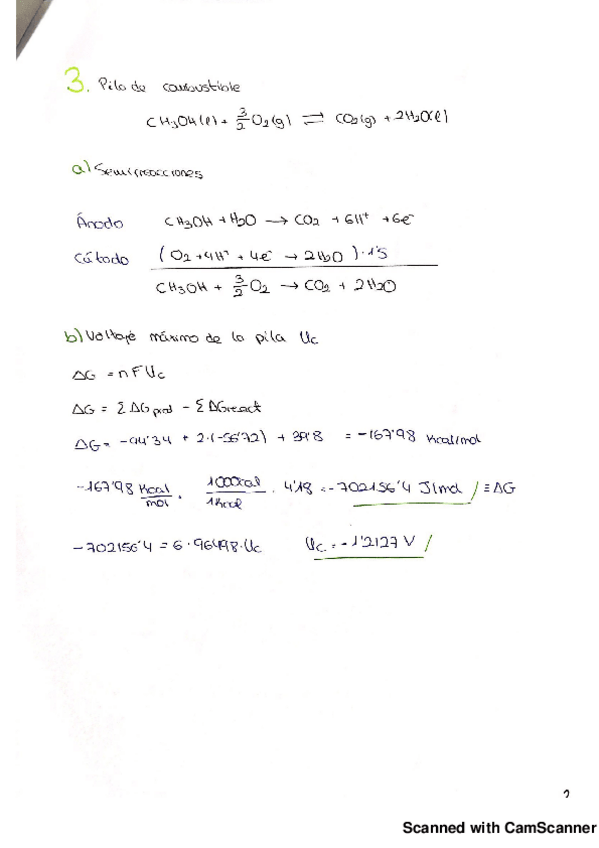 3. Pila de combustible
CH3OH(l) + 3/2 O2(g) ⇌ CO2(g) + 2H2O(l)
a) Semirreacciones
Ánodo CH3OH + H2O → CO2 + 6H+ + 6e-
Cátodo (O2 + 4H+ + 4e- → 2H2O)·1'5
CH3OH + 3/2 O2 → CO2 + 2H2O
b) Voltaje máximo de la pila Uc
ΔG = nFUc
ΔG = ΣΔGprod - ΣΔGreact
ΔG = -94'34 + 2·(-56'72) + 39'8 = -167'98 Kcal/mol
-167'98 Kcal/mol · 1000cal/1Kcal · 4'18 = -702156'4 J/mol / ≡ ΔG
-702156'4 = 6·96498·Uc Uc = -1'2127 V /
2
Scanned with CamScanner